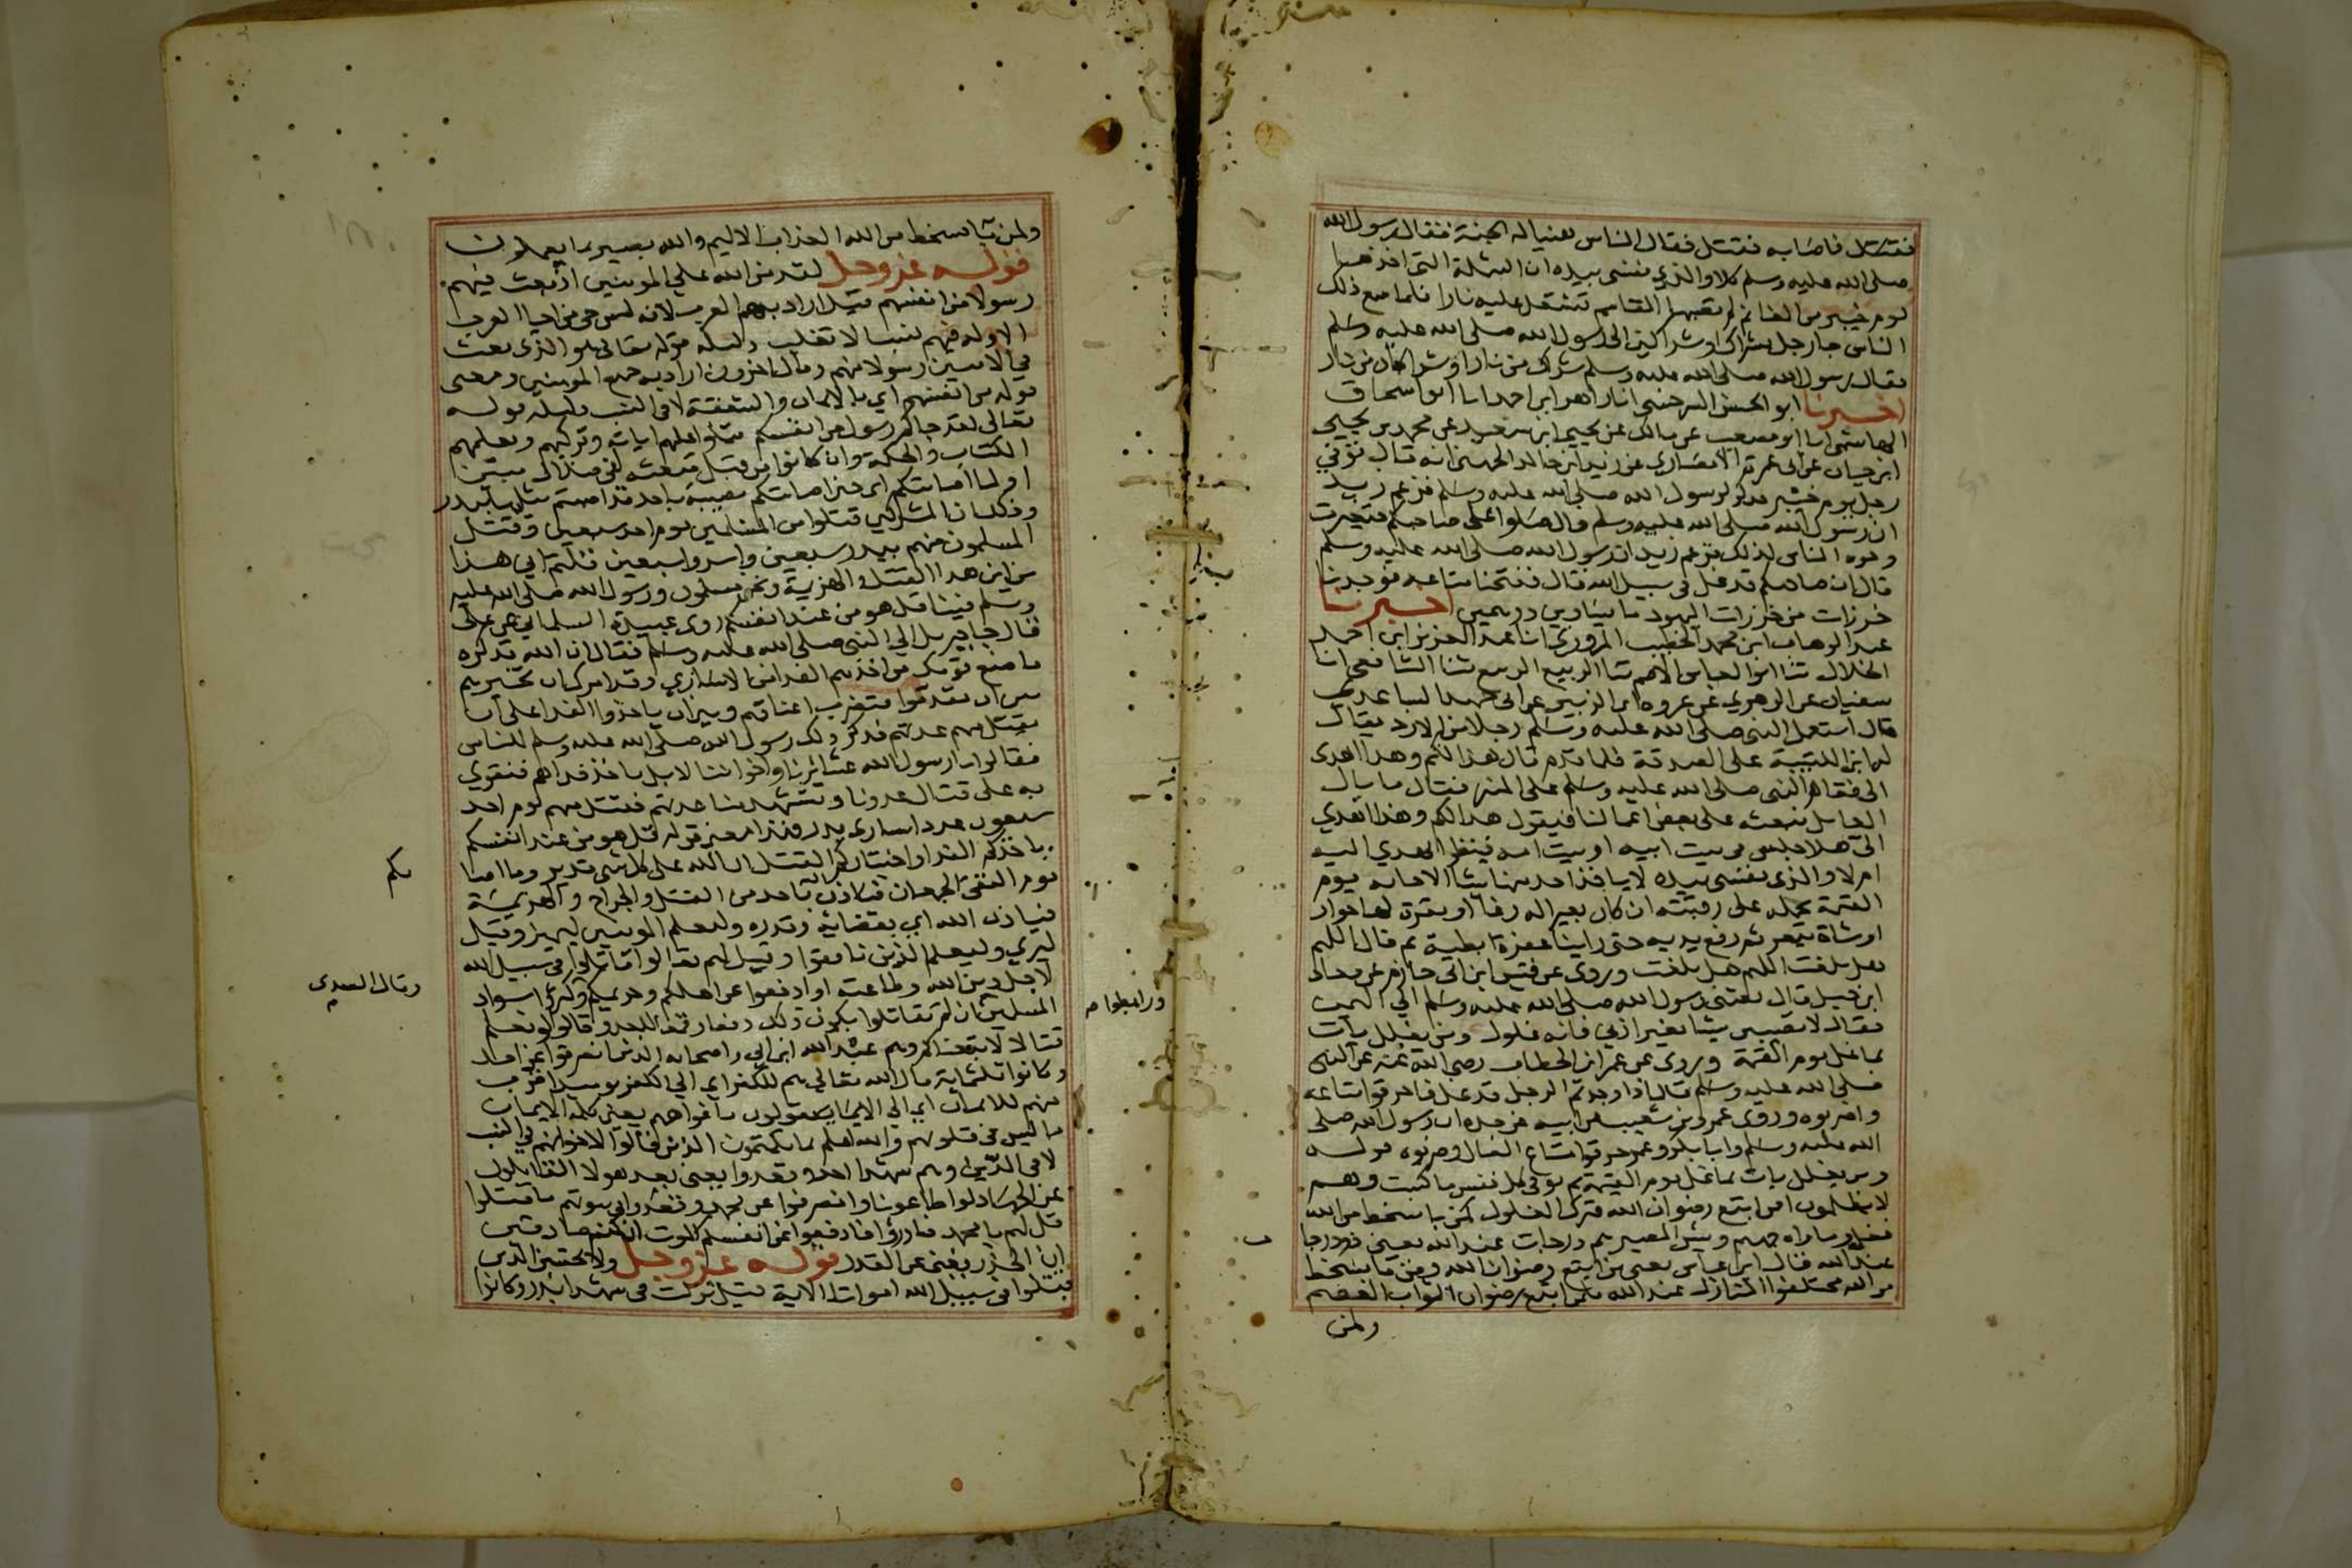 فقتل فاصابه فقتل فقال الناس هنيا له الجنة فقال رسول الله
صلى الله عليه وسلم كلا والذي نفسي بيده ان الشملة التي اخذها
يوم خيبر من الغنائم لم تصبها المقاسم تشتعل عليه نارا فلما سمع ذلك
الناس جا رجل بشراك او شراكين الى رسول الله صلى الله عليه وسلم
فقال رسول الله صلى الله عليه وسلم شراك من نار او شراكان من نار
اخبرنا ابو الحسن السرخسي انا زاهر ابن احمد انا ابو اسحاق
الهاشمي انا ابو مصعب عن مالك عن يحيى ابن سعيد عن محمد بن يحيى
ابن حيان عن ابي عمرة الانصاري عن زيد ابن خالد الجهني انه قال توفي
رجل يوم خيبر فذكر لرسول الله صلى الله عليه وسلم فزعم زيد
ان رسول الله صلى الله عليه وسلم قال صلوا على صاحبكم فتغيرت
وجوه الناس لذلك فزعم زيد ان رسول الله صلى الله عليه وسلم
قال ان صاحبكم قد غل في سبيل الله قال ففتحنا متاعه فوجدنا
خرزات من خرزات اليهود ما يساوين درهمين اخبرنا
عبد الوهاب ابن محمد الخطيب المروزي انا عبد العزيز ابن احمد
الخلال ثنا ابو العباس الاصم ثنا الربيع ثنا الشافعي انا
سفيان عن الزهري عن عروه ابن الزبير عن ابي حميد الساعدي
قال استعمل النبي صلى الله عليه وسلم رجلا من الازد يقال
له ابن اللتبية على الصدقة فلما قدم قال هذا لكم وهذا اهدى
الي فقام النبي صلى الله عليه وسلم على المنبر فقال ما بال
العامل نبعثه على بعض اعمالنا فيقول هذا لكم وهذا اهدي
الي هلا جلس في بيت ابيه او بيت امه فينظر ايهدي اليه
ام لا والذي نفسي بيده لا ياخذ احد منها شيا الا جا به يوم
القيمة يحمله على رقبته ان كان بعيرا له رغا او بقرة لها خوار
او شاة تيعر ثم رفع يديه حتى راينا عفرة ابطيه ثم قال اللهم
هل بلغت اللهم هل بلغت وروى عن قيس ابن ابي حازم عن معاذ
ابن جبل قال بعثني رسول الله صلى الله عليه وسلم الي اليمن
فقال لا تصيبن شيا بغير اذني فانه غلول ومن يغلل يات
بما غل يوم القيمة وروى عن عمر ابن الخطاب رضي الله عنه عن النبي
صلى الله عليه وسلم قال اذا وجدتم الرجل قد غل فاحرقوا متاعه
واضربوه وروى عمرو بن شعيب عن ابيه عن جده ان رسول الله صلى
الله عليه وسلم وابا بكر وعمر حرقوا متاع الغال وضربوه قوله
ومن يغلل يات بما غل يوم القيمة ثم توفى كل نفس ما كسبت وهم
لا يظلمون افمن اتبع رضوان الله فترك الغلول كمن با بسخط من الله
فغل وماواه جهنم وبئس المصير هم درجات عند الله يعني ذو درجات
عند الله قال ابن عباس يعني من اتبع رضوان الله ومن با بسخط
من الله مختلفوا المنازل عند الله فلمن اتبع رضوان الله الثواب العظيم
ولمن
ولمن با بسخط من الله العذاب الاليم والله بصير بما يعملون
قوله عز وجل لقد من الله على المومنين اذ بعث فيهم
رسولا من انفسهم قيل اراد بهم العرب لانه ليس حي من احيا العرب
الا وله فيهم نسب الا تغلب دليله قوله تعالى هو الذي بعث
في الاميين رسولا منهم وقال اخرون اراد به جميع المومنين ومعنى
قوله من انفسهم اي بالايمان والشفقة لا في النسب ودليله قوله
تعالى لقد جاكم رسول من انفسكم يتلوا عليهم اياته ويزكيهم ويعلمهم
الكتاب والحكمة وان كانوا من قبل مبعثه لفي ضلال مبين
او لما اصابتكم اي حين اصابتكم مصيبة باحد قد اصبتم مثليها ببدر
وذلك ان المشركين قتلوا من المسلمين يوم احد سبعين وقتل
المسلمون منهم ببدر سبعين واسروا سبعين قلتم انى هذا
من اين هذا القتل والهزيمة ونحن مسلمون ورسول الله صلى الله عليه
وسلم فينا قل هو من عند انفسكم روى عبيدة السلماني عن علي
قال جا جبريل الي النبي صلى الله عليه وسلم فقال ان الله قد كره
ما صنع قومك من اخذهم الفدا من الاسارى وقد امرك ان تخيرهم
بين ان يقدموا فتضرب اعناقهم وبين ان ياخذوا الفدا على ان
يقتل منهم عدتهم فذكر ذلك رسول الله صلى الله عليه وسلم للناس
فقالوا يا رسول الله عشائرنا واخواننا لا بل ناخذ فداهم فنقوى
به على قتال عدونا ويستشهد منا عدتهم فقتل منهم يوم احد
سبعون عدد اسارى بدر فهذا معنى قوله قل هو من عند انفسكم
باخذكم الفدا واختياركم القتل ان الله على كل شي قدير وما اصا
بكم
يوم التقى الجمعان فباذن باحد من القتل والجراح والهزيمة
فباذن الله اي بقضائه وقدره وليعلم المومنين ليميز وقيل
ليري وليعلم الذين نافقوا وقيل لهم تعالوا قاتلوا في سبيل الله
لاجل دين الله وطاعته او ادفعوا عن اهلكم وحريمكم
وقال السدي
اي كثروا سواد
المسلمين ان لم تقاتلوا يكون ذلك دفعا وقمعا للعدو قالوا لو نعلم
ورابطوا
قتالا لاتبعناكم وهم عبد الله ابن ابي واصحابه الذين انصرفوا عن احد
وكانوا ثلثماية قال الله تعالى هم للكفر اي الي الكفر يومئذ اقرب
منهم للايمان اي الي الايمان يقولون بافواههم يعني كلمة الايمان
ما ليس في قلوبهم والله اعلم بما يكتمون الذين قالوا لاخوانهم في النسب
لا في الدين وهم شهدا احد وقعدوا يعني قعد هولا القائلون
عن الجهاد لو اطاعونا وانصرفوا عن محمد وقعدوا في بيوتهم ما قتلوا
قل لهم يا محمد فادرؤا فادفعوا عن انفسكم الموت ان كنتم صادقين
ان الحذر يغني عن القدر قوله عز وجل ولا تحسبن الذين
قتلوا في سبيل الله امواتا الاية قيل نزلت في شهدا بدر وكانوا